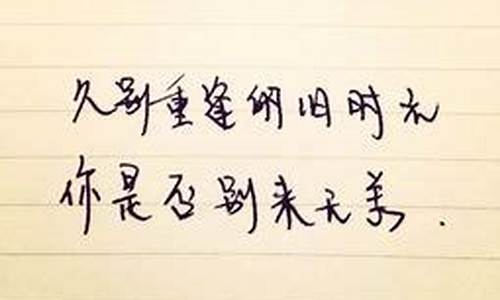 久别重逢的旧时光
你是否别来无恙.